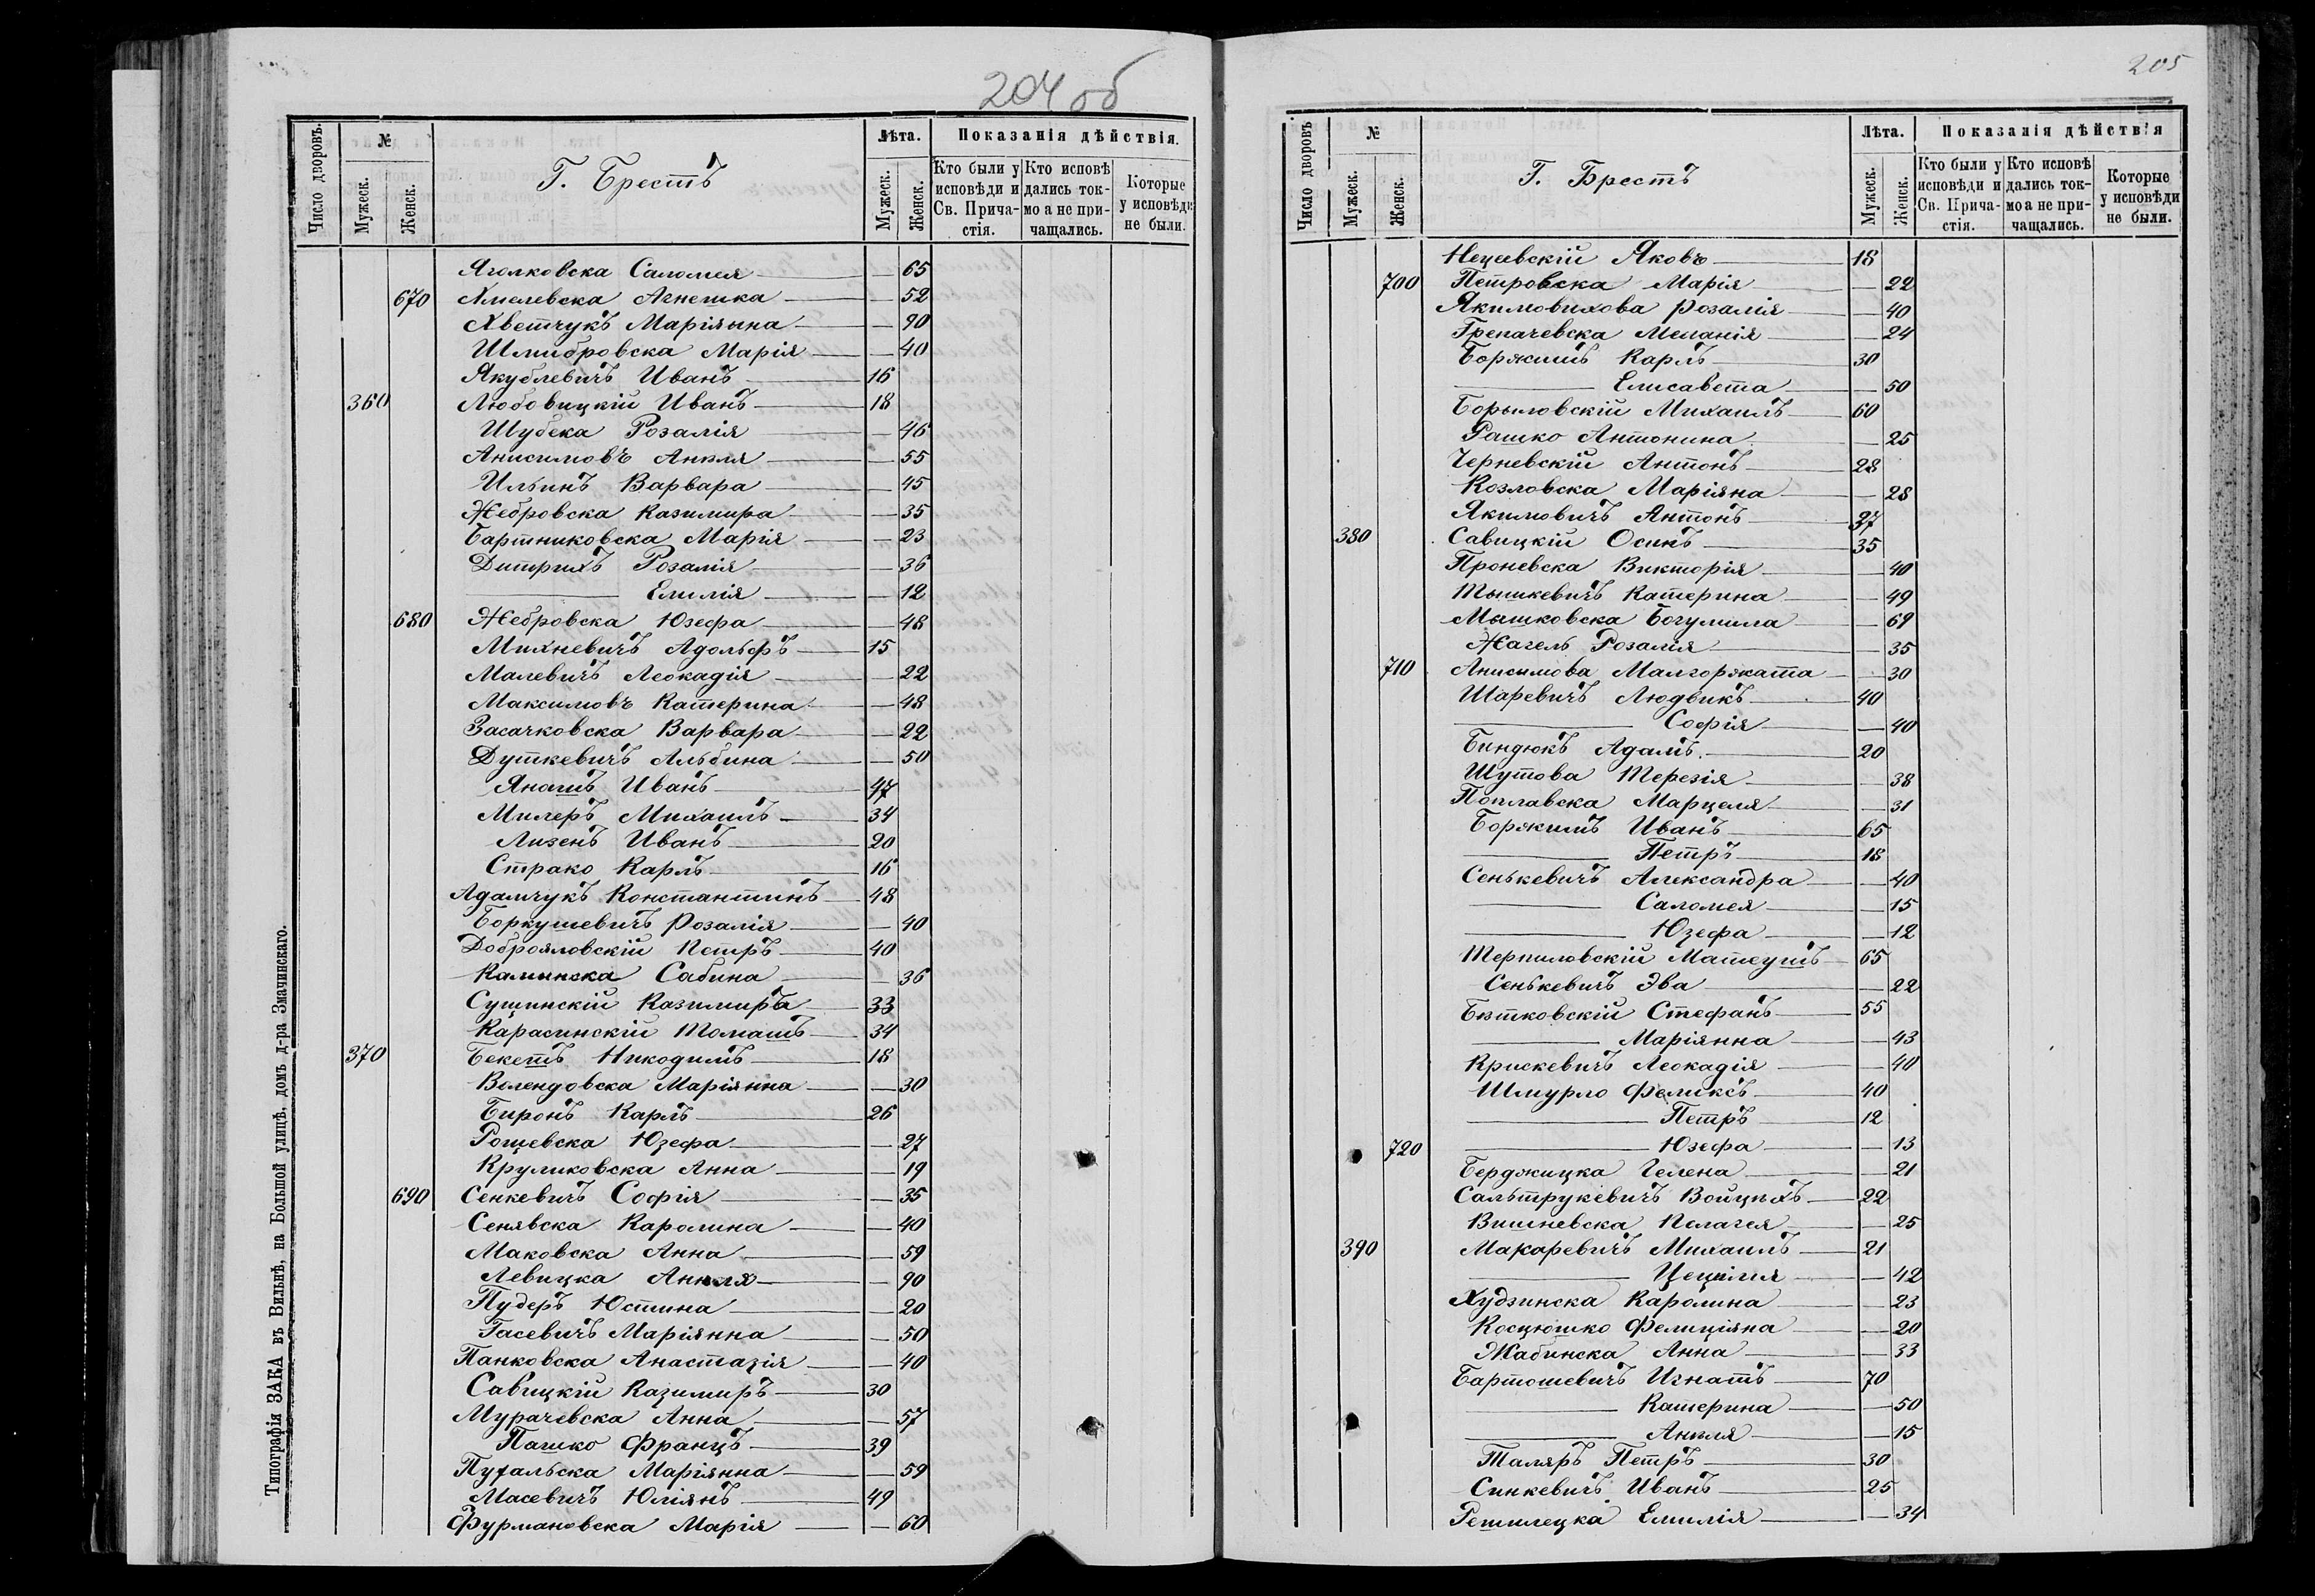 204 об
Число дворовъ.
№
Мужеск.
Женск.
Г. Брестъ
Лѣта.
Мужеск.
Женск.
Показанія дѣйствія.
Кто были у исповѣди и Св. Прича-стія.
Кто исповѣ дались ток-мо а не при-чащались.
Которые у исповѣди не были.
Яголковска Саломея — 65
670 Хмелевска Агнешка — 52
Хветчукъ Маріянна — 90
Шмибровска Марія — 40
Якублевичъ Иванъ 16
360 Любовицкій Иванъ 18
Шубека Розалія — 46
Анисимовъ Анпля — 55
Ильинъ Варвара — 45
Жебровска Казимира — 35
Бартниковска Марія — 23
Дитрихъ Розалія — 36
— Емилія — 12
680 Жебровска Юзефа — 48
Михневичъ Адольфъ 15
Малевичъ Леокадія — 22
Максимовъ Катерина — 48
Засачковска Варвара — 22
Дуткевичъ Альбина — 50
Янашъ Иванъ 47
Милеръ Михаилъ 34
Лизенъ Иванъ 20
Страко Карлъ 16
Адамчукъ Константинъ 48
Боркушевичъ Розалія — 40
Доброяловскій Петръ 40
Каминска Сабина — 36
Сушинскій Казимиръ 33
Карасинскій Томашъ 34
370 Бекешъ Никодимъ 18
Волендовска Маріянна — 30
Биронъ Карлъ 26
Рощевска Юзефа — 27
Круликовска Анна — 19
690 Сенкевичъ Софія — 35
Сенявска Каролина — 40
Маковска Анна — 59
Левицка Анеля — 90
Пудеръ Юстина — 20
Гасевичъ Маріянна — 50
Панковска Анастазія — 40
Савицкій Казимиръ 30
Мурачевска Анна — 57
Пашко Францъ 39
Пухальска Маріянна — 59
Масевичъ Юліянъ 49
Фурмановска Марія — 60
Типографія ЗАКА въ Вильнѣ, на Большой улицѣ, домъ д-ра Змачинскаго.
205
Число дворовъ
№
Мужеск.
Женск.
Г. Брестъ
Лѣта.
Мужеск.
Женск.
Показанія дѣйствія
Кто были у исповѣди и Св. Прича-стія.
Кто исповѣ дались ток-мо а не при-чащались.
Которые у исповѣди не были.
Нецевскій Яковъ 18
700 Петровска Марія — 22
Якимовихова Розалія — 40
Грепачевска Меланія — 24
Боржимъ Карлъ 30
— Елисавета — 50
Борыловскій Михаилъ 60
Рашко Антонина — 25
Черневскій Антонъ 28
Козловска Маріяна — 28
Якимовичъ Антонъ 37
380 Савицкій Осипъ 35
Проневска Викторія — 40
Тышкевичъ Катерина — 49
Мышковска Богумила — 69
Жагель Розалія — 35
710 Анисимова Малгоржата — 30
Шаревичъ Людвикъ 40
— Софія — 40
Биндюкъ Адамъ 20
Шутова Терезія — 38
Поплавска Марцеля — 31
Боржимъ Иванъ 65
— Петръ 18
Сенькевичъ Александра — 40
— Саломея — 15
— Юзефа — 12
Терпиловскій Матеушъ 65
Сенькевичъ Эва — 22
Бѣтковскій Стефанъ 55
— Маріянна — 43
Крискевичъ Леокадія — 40
Шмурло Феликсъ 40
— Петръ 12
720 — Юзефа — 13
Берджицка Гелена — 21
Сальтрукевичъ Войцѣхъ 22
Вишневска Пелагея — 25
390 Макаревичъ Михаилъ 21
— Цецилія — 42
Худзинска Каролина — 23
Косцюшко Фелиціяна — 20
Жабинска Анна — 33
Бартошевичъ Игнатъ 70
— Катерина — 50
— Анпля — 15
Таляръ Петръ 30
Синкевичъ Иванъ 25
Решилецка Емилія — 34